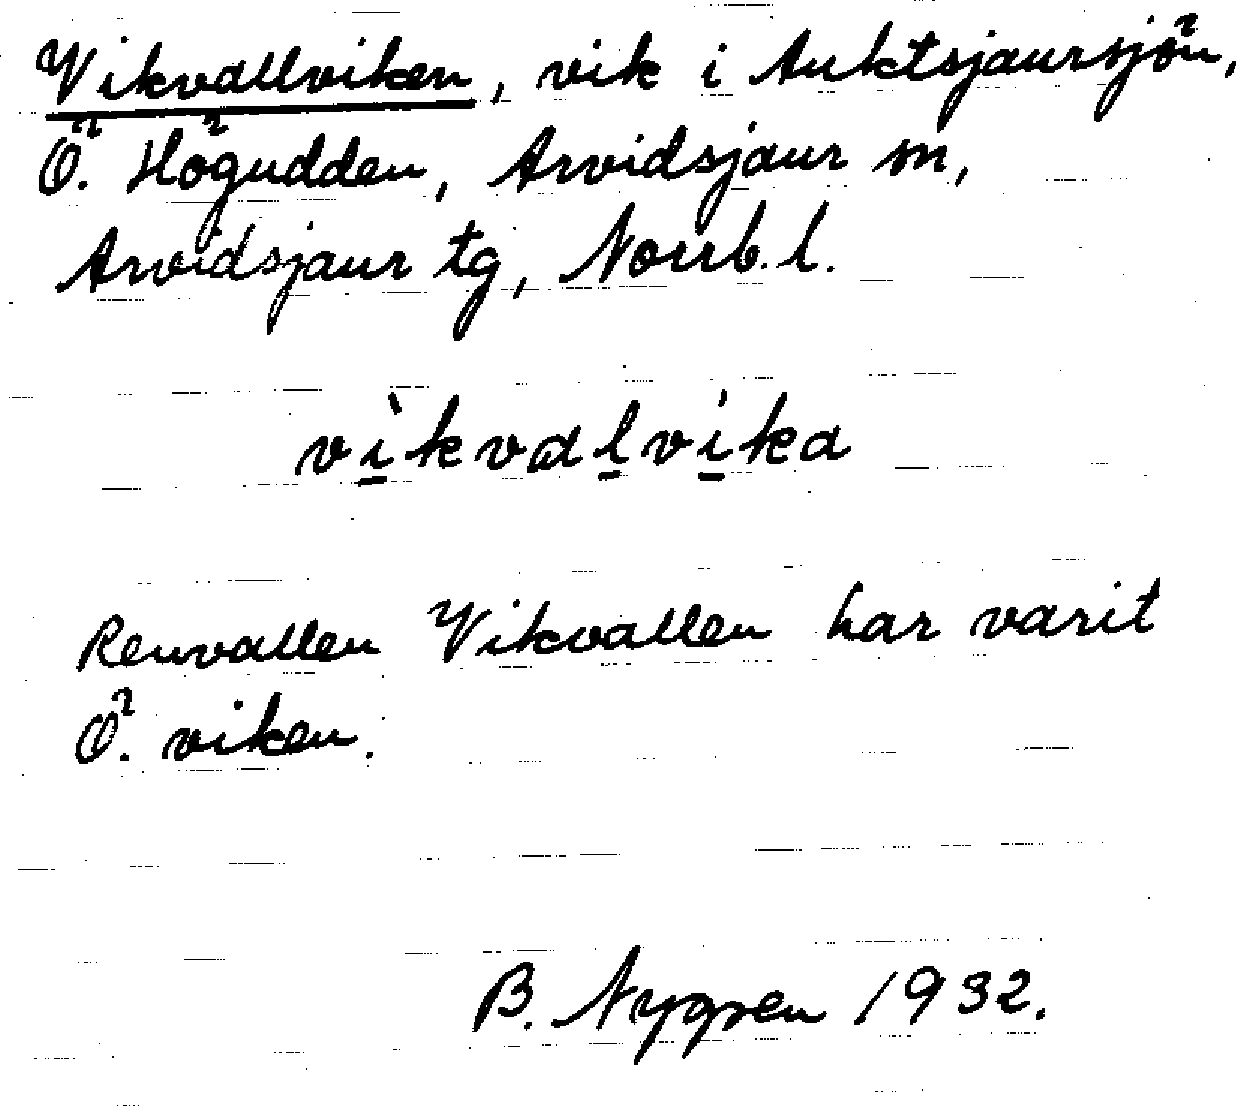 Vikvallviken, vik i Auktsjaursjön,
Ö. Högudden, Arvidsjaur sn,
Arvidsjaur tg, Norrb. l.
vì̱kvaḻví̱ka
Renvallen Vikvallen har varit
Ö. viken.
B. Nygren 1932.